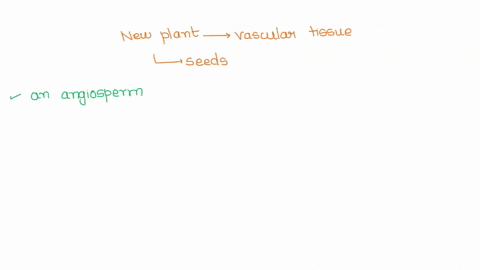 New plant → vascular tissue
↳ seeds
✓ an angiosperm